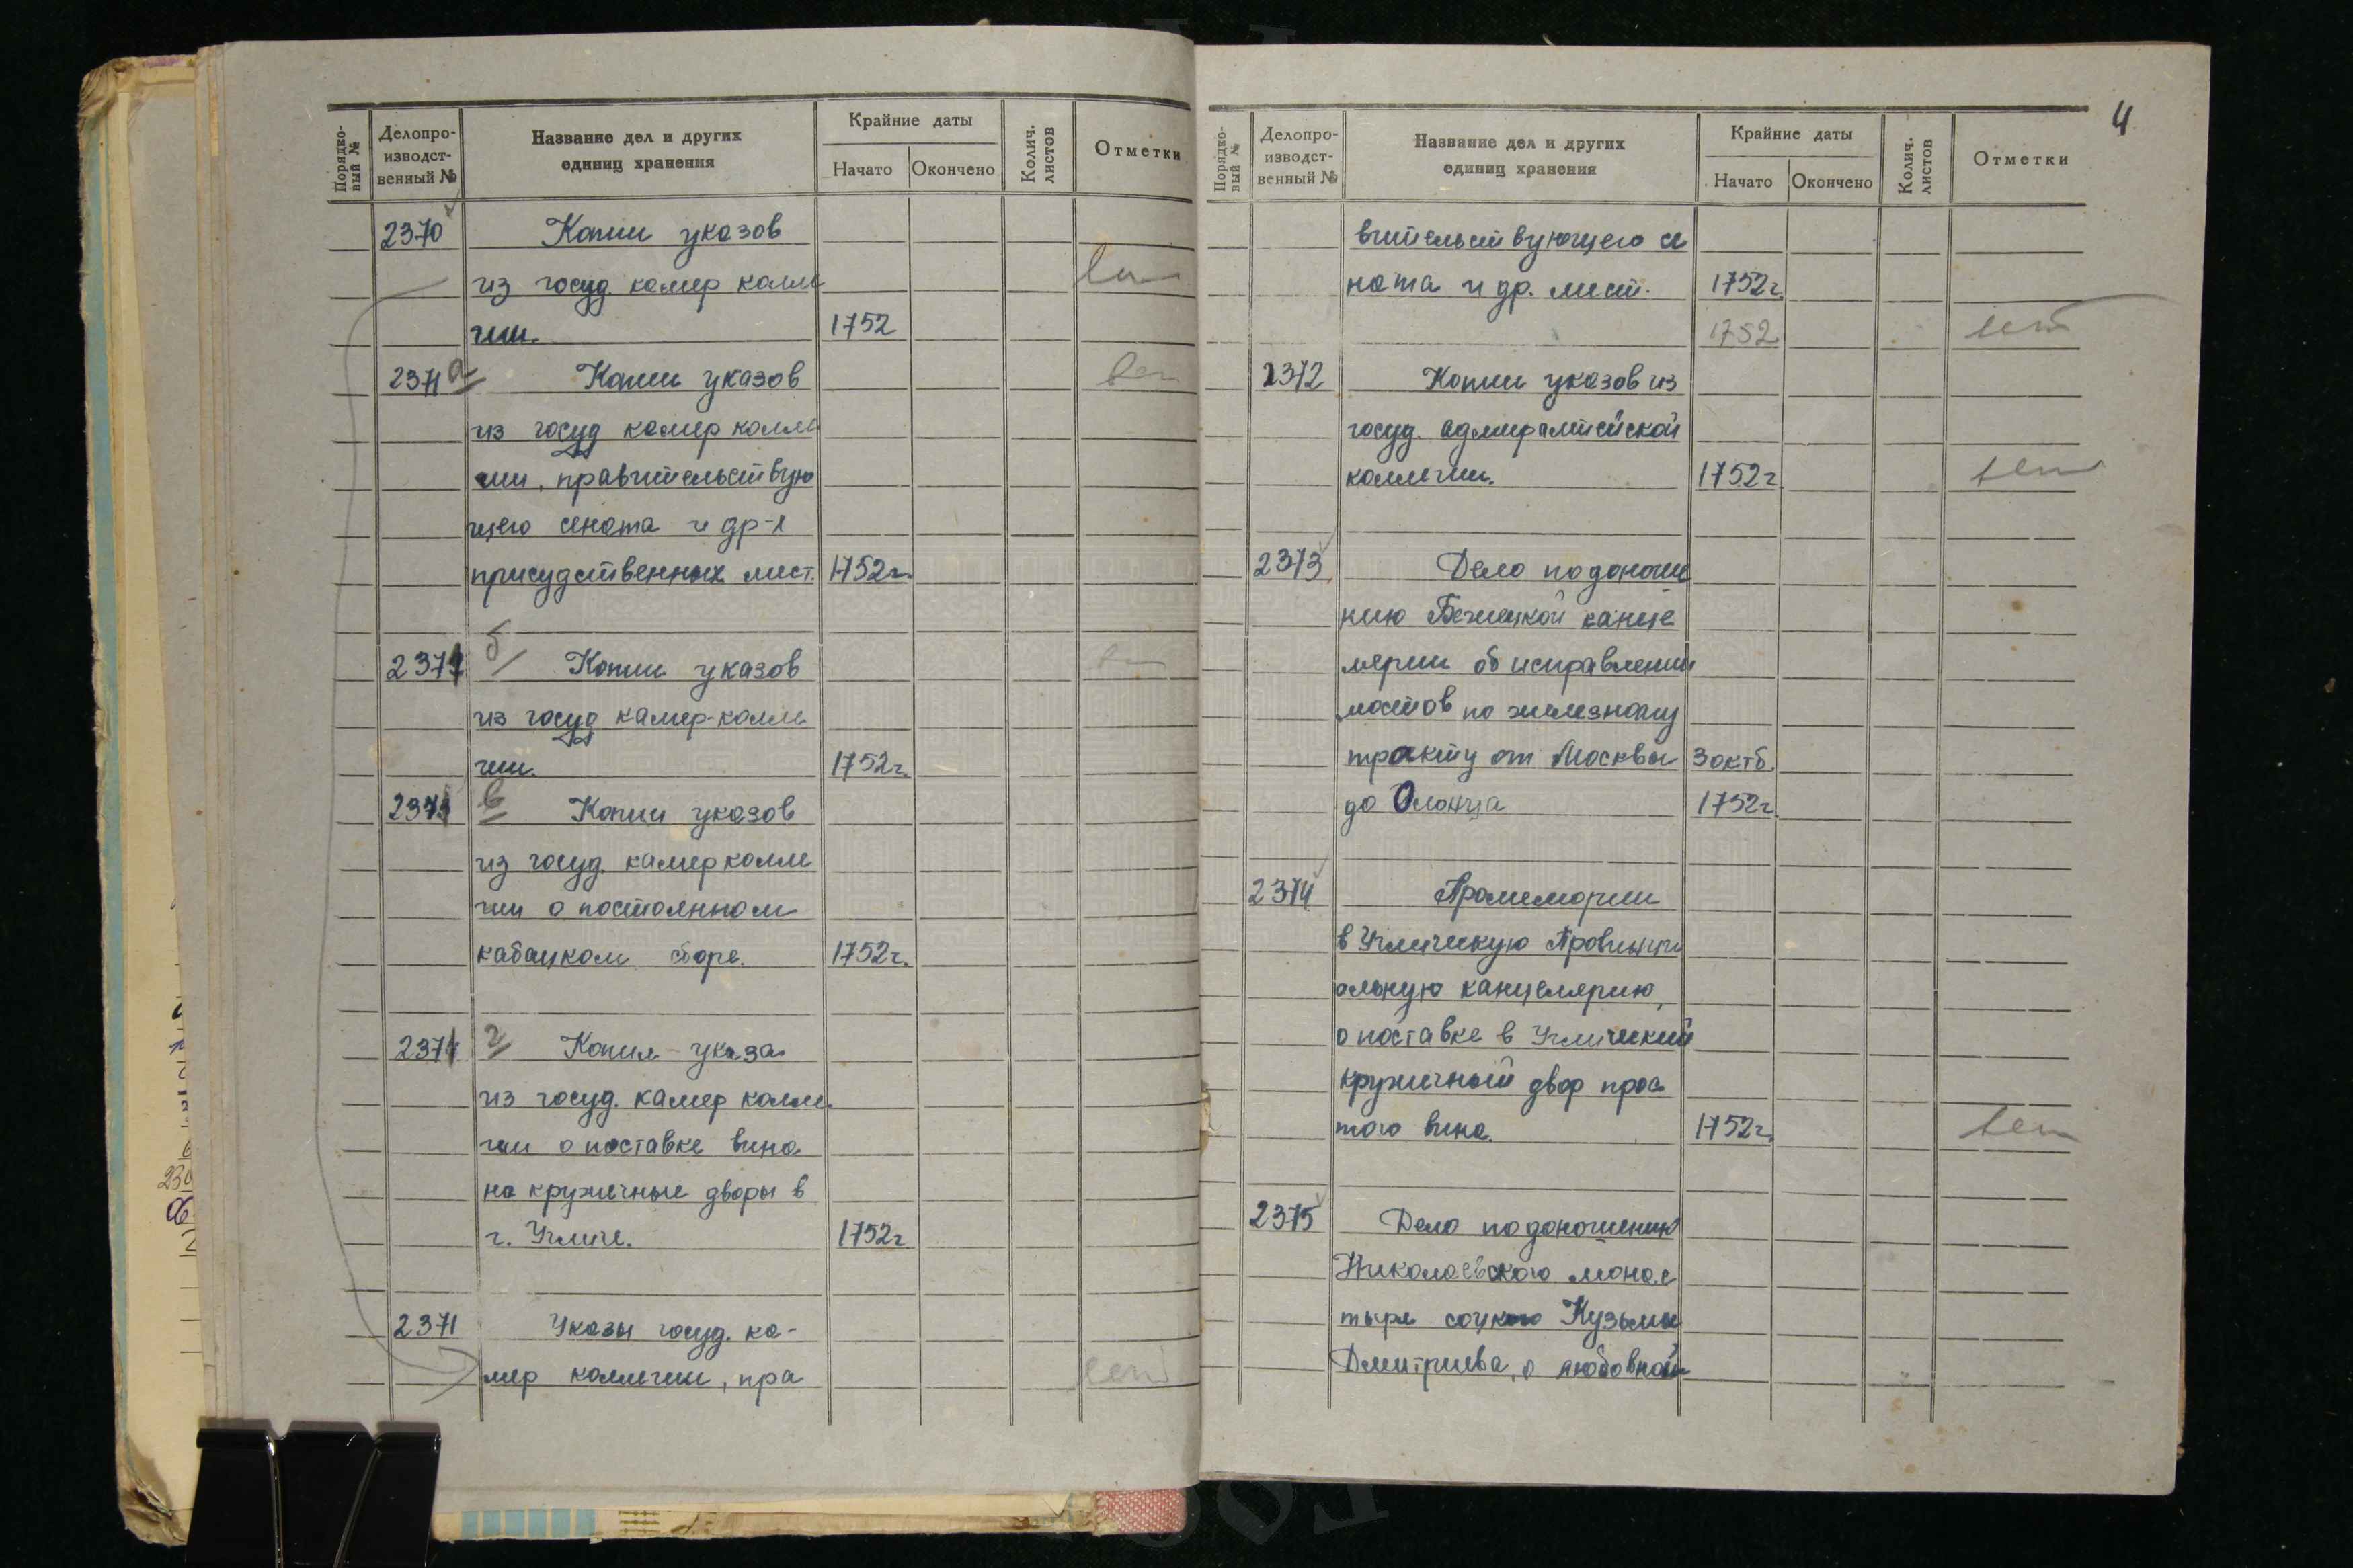 Порядко-
вый №
Делопро-
изводст-
венный №
Название дел и других
единиц хранения
Крайние даты
Начато
Окончено
Колич.
листов
Отметки
2370 Копии указов
из госуд камер колле
гии. 1752
2371 а Копии указов
из госуд камер колле
гии, правительствую
щего сената и др-х
присудственных мест. 1752г.
2371 б Копии указов
из госуд камер-колле
гии. 1752г.
2371 в Копии указов
из госуд. камер колле
гии о постоянном
кабацком сборе. 1752г.
2371 г Копия указа
из госуд. камер колле
гии о поставке вина
на кружечные дворы в
г. Угличе. 1752г
2371 Указы госуд. ка-
мер коллегии, пра
4
Порядко-
вый №
Делопро-
изводст-
венный №
Название дел и других
единиц хранения
Крайние даты
Начато
Окончено
Колич.
листов
Отметки
вительствующего се
ната и др. мест. 1752г
1752
2372 Копии указов из
госуд. адмиралтейской
коллегии. 1752г
2373 Дело по доноше
нию Бежецкой канце
лярии об исправлении
мостов по железному
тракту от Москвы 3 октб.
до Олонца 1752г
2374 Промемории
в Угличскую Провинци
альную канцелярию,
о поставке в Угличский
кружечный двор прос
того вина. 1752г.
2375 Дело по доношению
Николаевского монас
тыря соцкого Кузьмы
Дмитриева, о любовной